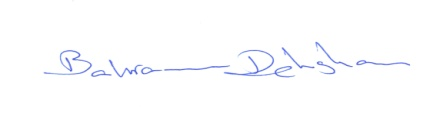 Bahram Dehghan